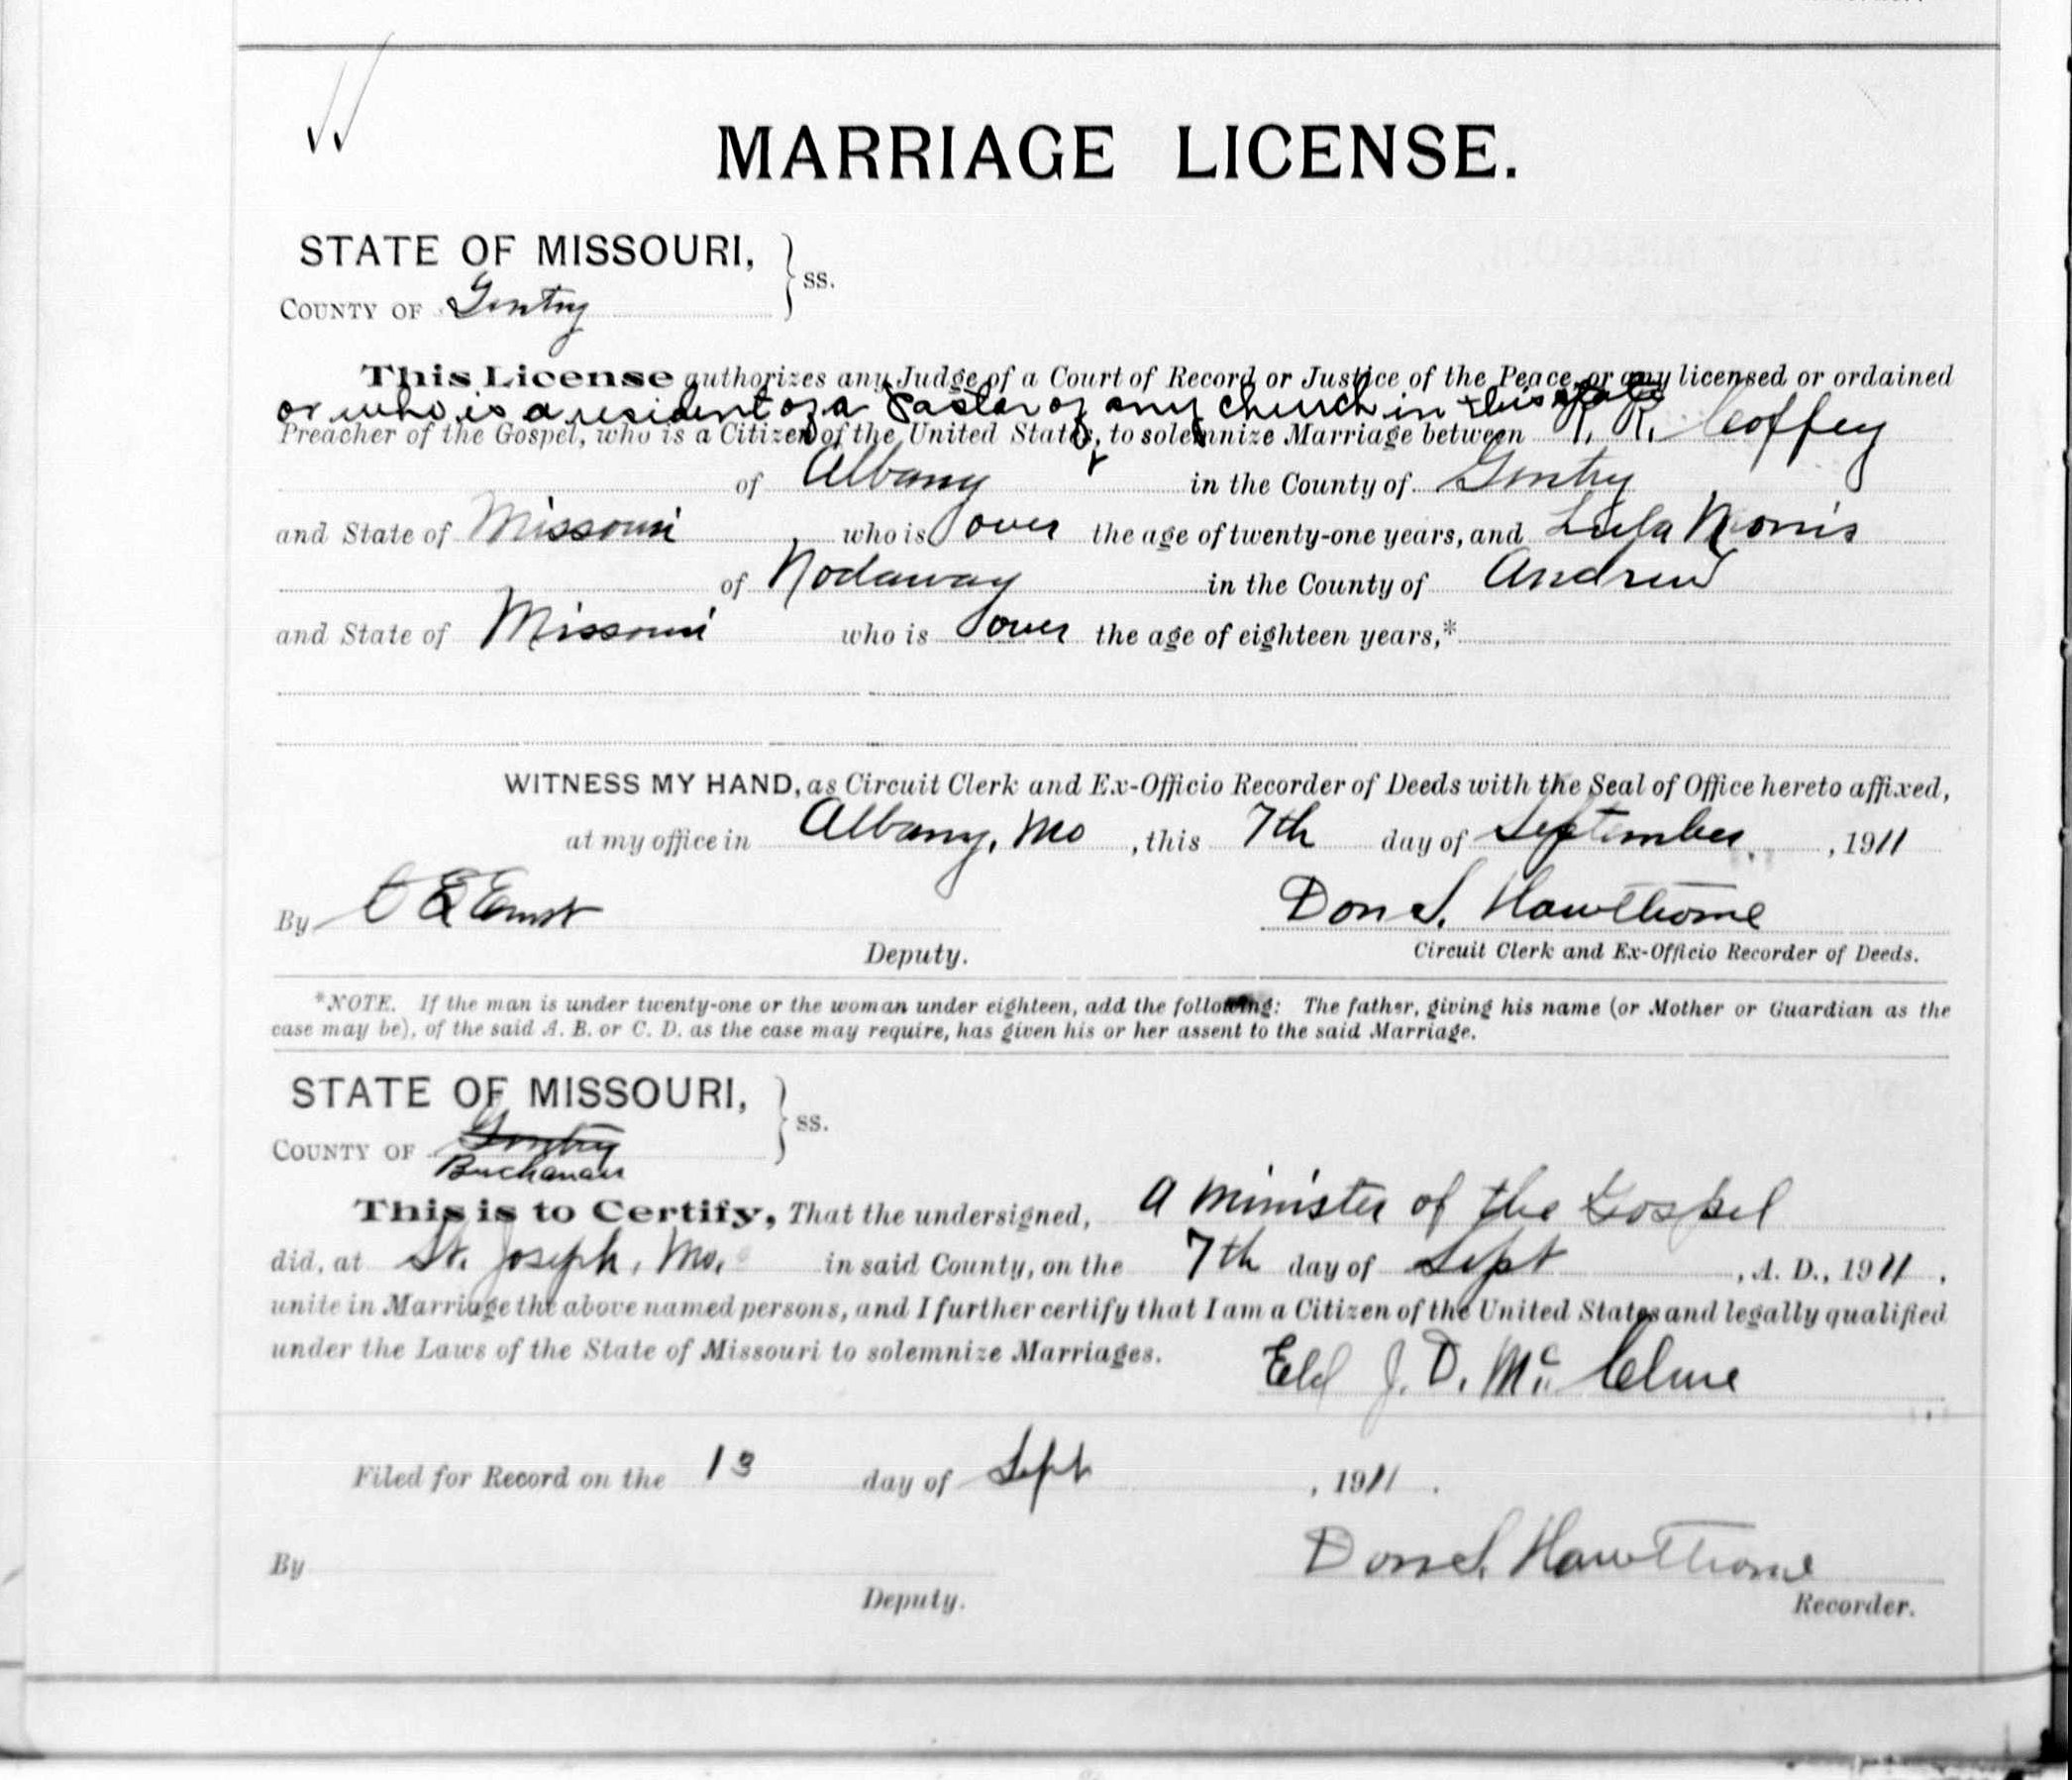 MARRIAGE LICENSE.
STATE OF MISSOURI,
ss.
COUNTY OF Gentry
This License authorizes any Judge of a Court of Record or Justice of the Peace, or any licensed or ordained
or who is a resident of a Pastor of any church in this state
Preacher of the Gospel, who is a Citizen of the United States, to solemnize Marriage between R. R. Coffey
of Albany in the County of Gentry
and State of Missouri who is over the age of twenty-one years, and Lula Morris
of Nodaway in the County of Andrew
and State of Missouri who is over the age of eighteen years,*
WITNESS MY HAND, as Circuit Clerk and Ex-Officio Recorder of Deeds with the Seal of Office hereto affixed,
at my office in Albany, Mo , this 7th day of September , 1911
By C E Ernst Don S. Hawthorne
Deputy. Circuit Clerk and Ex-Officio Recorder of Deeds.
*NOTE. If the man is under twenty-one or the woman under eighteen, add the following: The father, giving his name (or Mother or Guardian as the
case may be), of the said A. B. or C. D. as the case may require, has given his or her assent to the said Marriage.
STATE OF MISSOURI,
ss.
COUNTY OF Gentry
Buchanan
This is to Certify, That the undersigned, a minister of the Gospel
did, at St. Joseph, Mo. in said County, on the 7th day of Sept , A. D., 1911 .
unite in Marriage the above named persons, and I further certify that I am a Citizen of the United States and legally qualified
under the Laws of the State of Missouri to solemnize Marriages. Eld J. D. McClure
Filed for Record on the 13 day of Sept , 1911 .
By Don S. Hawthorne
Deputy. Recorder.